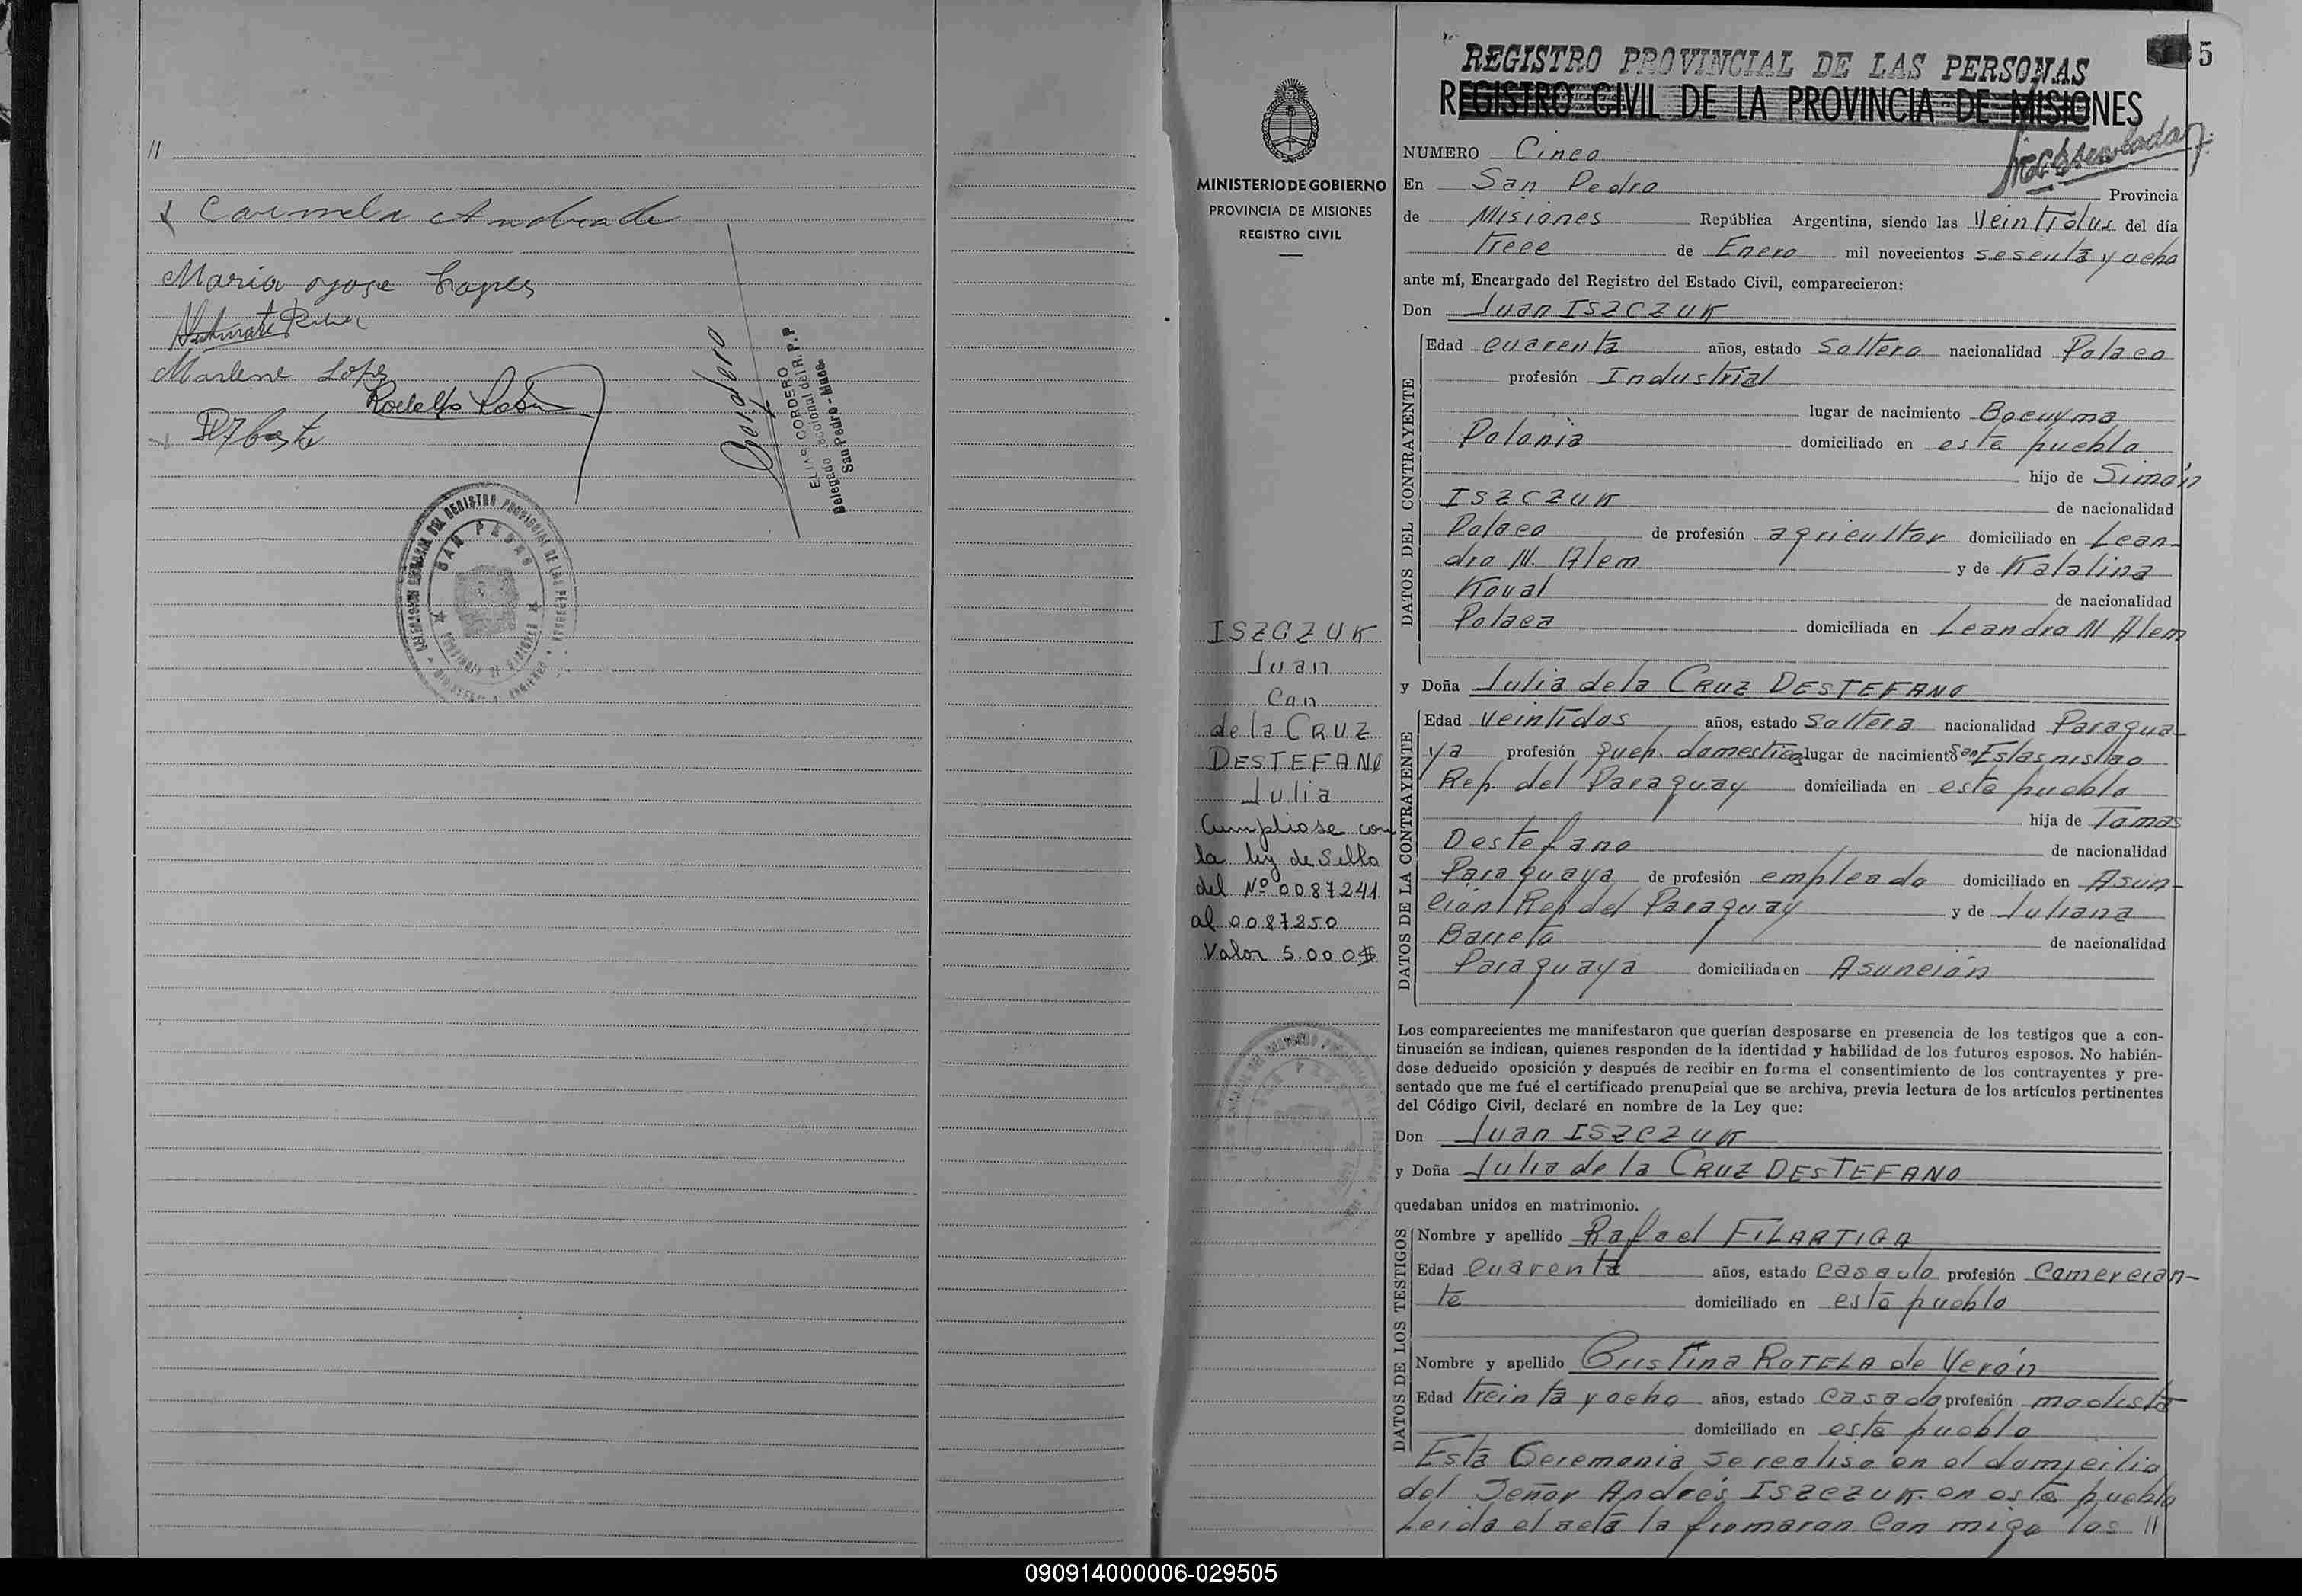 //
Carmela Andrade
Maria
Marlene Lopez
Rodolfo
Cordero
ELIAS CORDERO
Delegado Seccional del R. P. P
San Pedro - Mnes.
DEL REGISTRO PROVINCIAL DE LAS PERSONAS
SAN PEDRO
PROVINCIA DE MISIONES
MINISTERIO DE GOBIERNO
PROVINCIA DE MISIONES
REGISTRO CIVIL
ISZCZUK
Juan
Con
de la CRUZ
DESTEFANO
Julia
Cumpliose con
la ley de Sello
del Nº 0087241
al 0087250
Valor 5.000$
REGISTRO PROVINCIAL DE LAS PERSONAS
5
REGISTRO CIVIL DE LA PROVINCIA DE MISIONES
NUMERO Cinco
En San Pedro Provincia
de Misiones República Argentina, siendo las Veintidus del día
trece de Enero mil novecientos sesenta y ocho
ante mí, Encargado del Registro del Estado Civil, comparecieron:
Don Juan ISZCZUK
DATOS DEL CONTRAYENTE
Edad cuarenta años, estado Soltero nacionalidad Polaco
profesión Industrial
lugar de nacimiento
Polonia domiciliado en este pueblo
hijo de Simón
ISZCZUK de nacionalidad
Polaco de profesión agricultor domiciliado en Lean-
dro N. Alem y de Katalina
Koval de nacionalidad
Polaca domiciliada en Leandro N Alem
y Doña Julia de la CRUZ DESTEFANO
DATOS DE LA CONTRAYENTE
Edad Veintidos años, estado Soltera nacionalidad Paragua-
ya profesión queh. domesticos lugar de nacimiento San Estasnislao
Rep. del Paraguay domiciliada en este pueblo
hija de Tomas
Destefano de nacionalidad
Paraguaya de profesión empleado domiciliado en Asun-
ción Rep del Paraguay y de Juliana
Barreto de nacionalidad
Paraguaya domiciliada en Asunción
Los comparecientes me manifestaron que querían desposarse en presencia de los testigos que a con-
tinuación se indican, quienes responden de la identidad y habilidad de los futuros esposos. No habién-
dose deducido oposición y después de recibir en forma el consentimiento de los contrayentes y pre-
sentado que me fué el certificado prenupcial que se archiva, previa lectura de los artículos pertinentes
del Código Civil, declaré en nombre de la Ley que:
Don Juan ISZCZUK
y Doña Julia de la CRUZ DESTEFANO
quedaban unidos en matrimonio.
DATOS DE LOS TESTIGOS
Nombre y apellido Rafael FILARTIGA
Edad cuarenta años, estado casado profesión Comercian-
te domiciliado en este pueblo
Nombre y apellido Cristina ROTELA de Verón
Edad treinta y ocho años, estado casado profesión modista
domiciliado en este pueblo
Esta Ceremonia se realiso en el domicilio
del Señor Andrés ISZCZUK. en este pueblo
Leida el acta la firmaron con migo los //
090914000006-029505